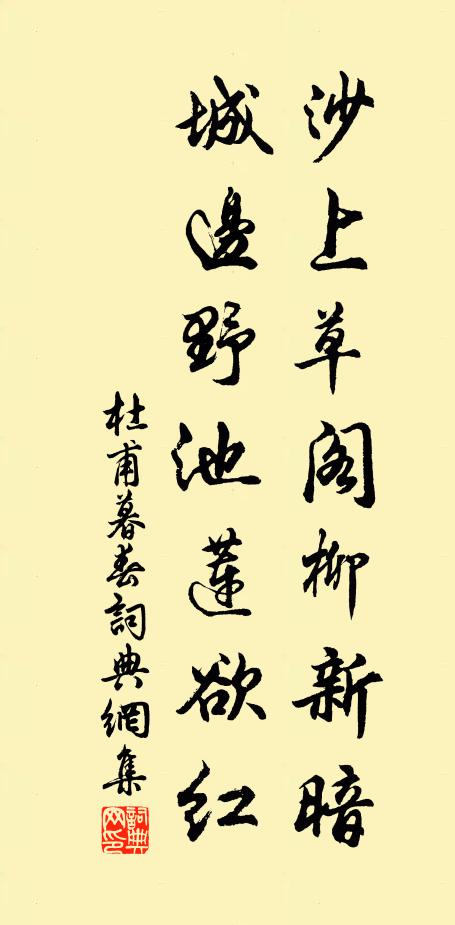 沙上草阁柳新暗
城邊野池蓮欲红
杜甫暮春詞典網集
詞典网印